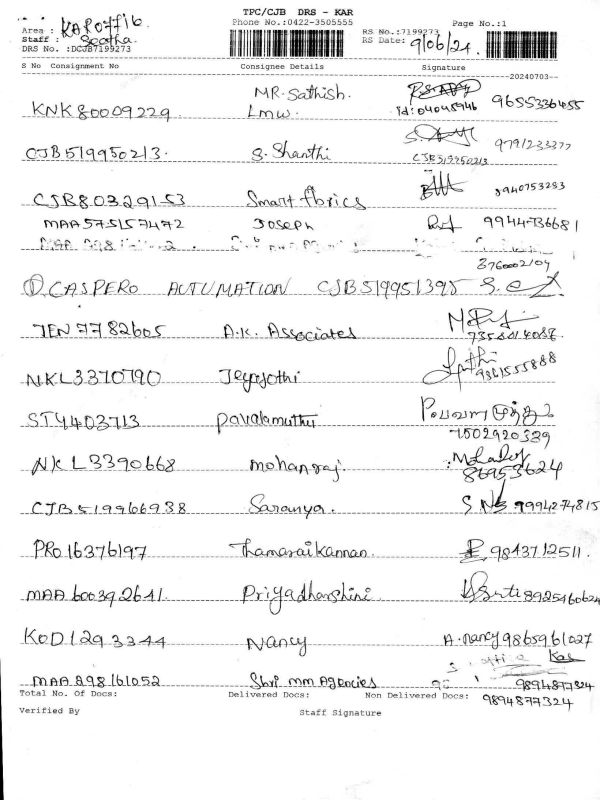 TPC/CJB DRS - KAR
Phone No.:0422-3505555
Page No.:1
Area : KAROFFIG
Staff : Seetha
DRS No. :DCJB7199273
RS No.:7199273
RS Date: 9/06/24.
S No Consignment No Consignee Details Signature
20240703
MR. Sathish.
KNK80009229 Lmw. Id:04045946 9655336455
CJB519950213. S. Shanthi 9791233377
CJB519950213
CJB80329153 Smart fbrics 8940753293
MAA575157472 Joseph 9944736681
8760002109
① CASPERO AUTUMATION CJB519951395
TEN7782605 A.K. Associates 7358014088
NKL3370790 Jeyajothi 9361555888
STY4403713 Pavalamuthu பவளமுத்து
7502920339
NKL3390668 mohanraj. 86953624
CJB519966938 Saranya. 9994274815
PRO16376197 Thamaraikannan. 9843712511.
MAA600392641. Priyadharshini 8925460624
KOD1293344 Nancy A. nancy 9865961027
MAA898161052 Shri mm Agencies 9894877324
Total No. Of Docs: Delivered Docs: Non Delivered Docs: 9894877324
Verified By Staff Signature